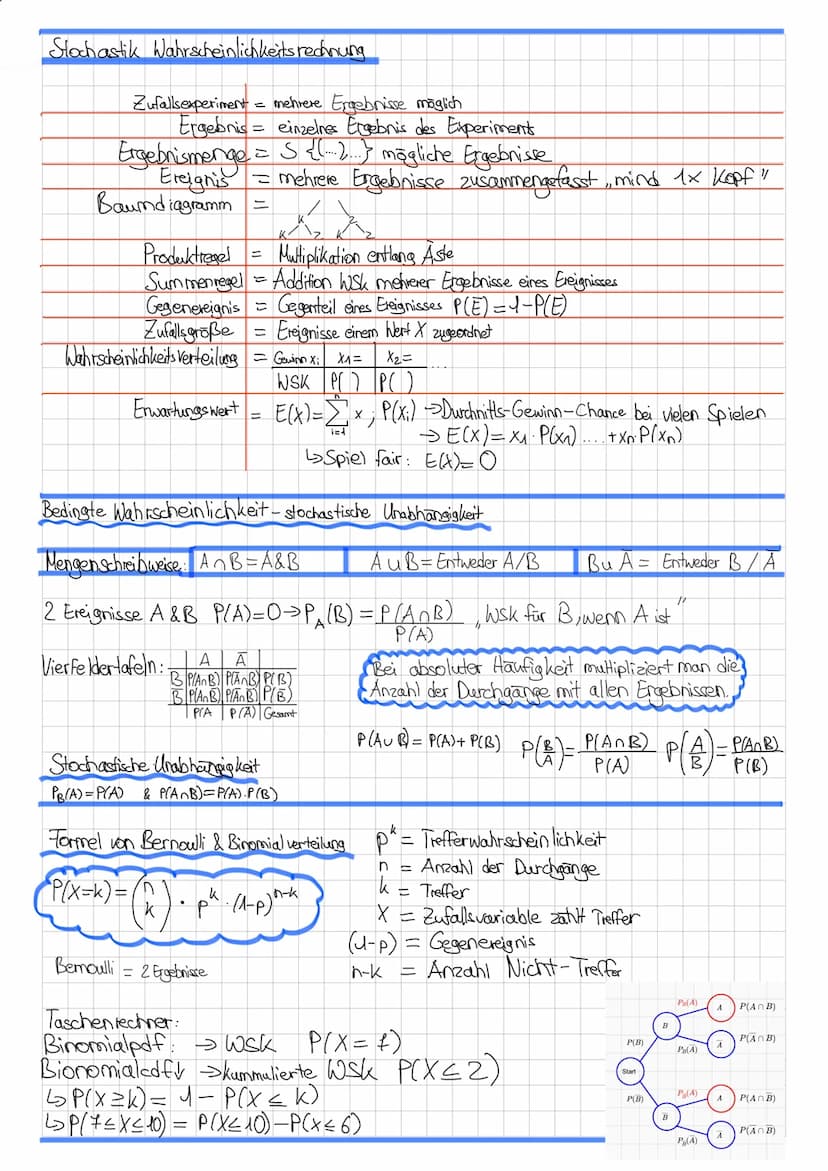 Stochastik Wahrscheinlichkeitsrechnung
Zufallsexperiment = mehrere Ergebnisse möglich
Ergebnis = einzelnes Ergebnis des Experiments
Ergebnismenge = S {(...),...} mögliche Ergebnisse
Ereignis = mehrere Ergebnisse zusammengefasst „mind 1x Kopf"
Baumdiagramm =
K Z
K Z K Z
Produktregel = Multiplikation entlang Äste
Summenregel = Addition WSK mehrerer Ergebnisse eines Ereignisses
Gegenereignis = Gegenteil eines Ereignisses P(E̅)=1-P(E)
Zufallsgröße = Ereignisse einem Wert X zugeordnet
Wahrscheinlichkeitsverteilung = Gewinn xi | x1= | x2= ...
WSK | P( ) | P( )
Erwartungswert = E(X)=∑ x; P(xi) →Durchnitts-Gewinn-Chance bei vielen Spielen
n
i=1
→ E(X)=x1·P(x1)....+xn·P(xn)
↳Spiel fair: E(X)=0
Bedingte Wahrscheinlichkeit-stochastische Unabhängigkeit
Mengenschreibweise: A∩B=A&B | A∪B=Entweder A/B | B∪A̅= Entweder B/A̅
2 Ereignisse A&B P(A)=0→P_A(B)=P(A∩B)/P(A) „WSK für B, wenn A ist"
Vierfeldertafeln: | A | A̅ |
B | P(A∩B) | P(A̅∩B) | P(B)
B̅ | P(A∩B̅) | P(A̅∩B̅) | P(B̅)
P(A | P(A̅) | Gesamt
Bei absoluter Häufigkeit multipliziert man die
Anzahl der Durchgänge mit allen Ergebnissen.
P(A∪B)=P(A)+P(B) P(B/A)=P(A∩B)/P(A) P(A/B)=P(A∩B)/P(B)
Stochastische Unabhängigkeit
P_B(A)=P(A) & P(A∩B)=P(A)·P(B)
Formel von Bernoulli & Binomialverteilung
P(X=k)=(n k)·p^k·(1-p)^n-k
Bernoulli = 2 Ergebnisse
p^k = Trefferwahrscheinlichkeit
n = Anzahl der Durchgänge
k = Treffer
X = Zufallsvariable zählt Treffer
(1-p) = Gegenereignis
n-k = Anzahl Nicht-Treffer
Taschenrechner:
Binomialpdf: → WSK P(X=1)
Bionomialcdf↓ →kummulierte WSK P(X≤2)
↳P(X≥k)= 1-P(X≤k)
↳P(7≤X≤10)= P(X≤10)-P(X≤6)
P_B(A) A P(A∩B)
B
P(B) P_B(A̅) A̅ P(A̅∩B)
Start
P(B̅) P_B̅(A) A P(A∩B̅)
B̅
P_B̅(A̅) A̅ P(A̅∩B̅)